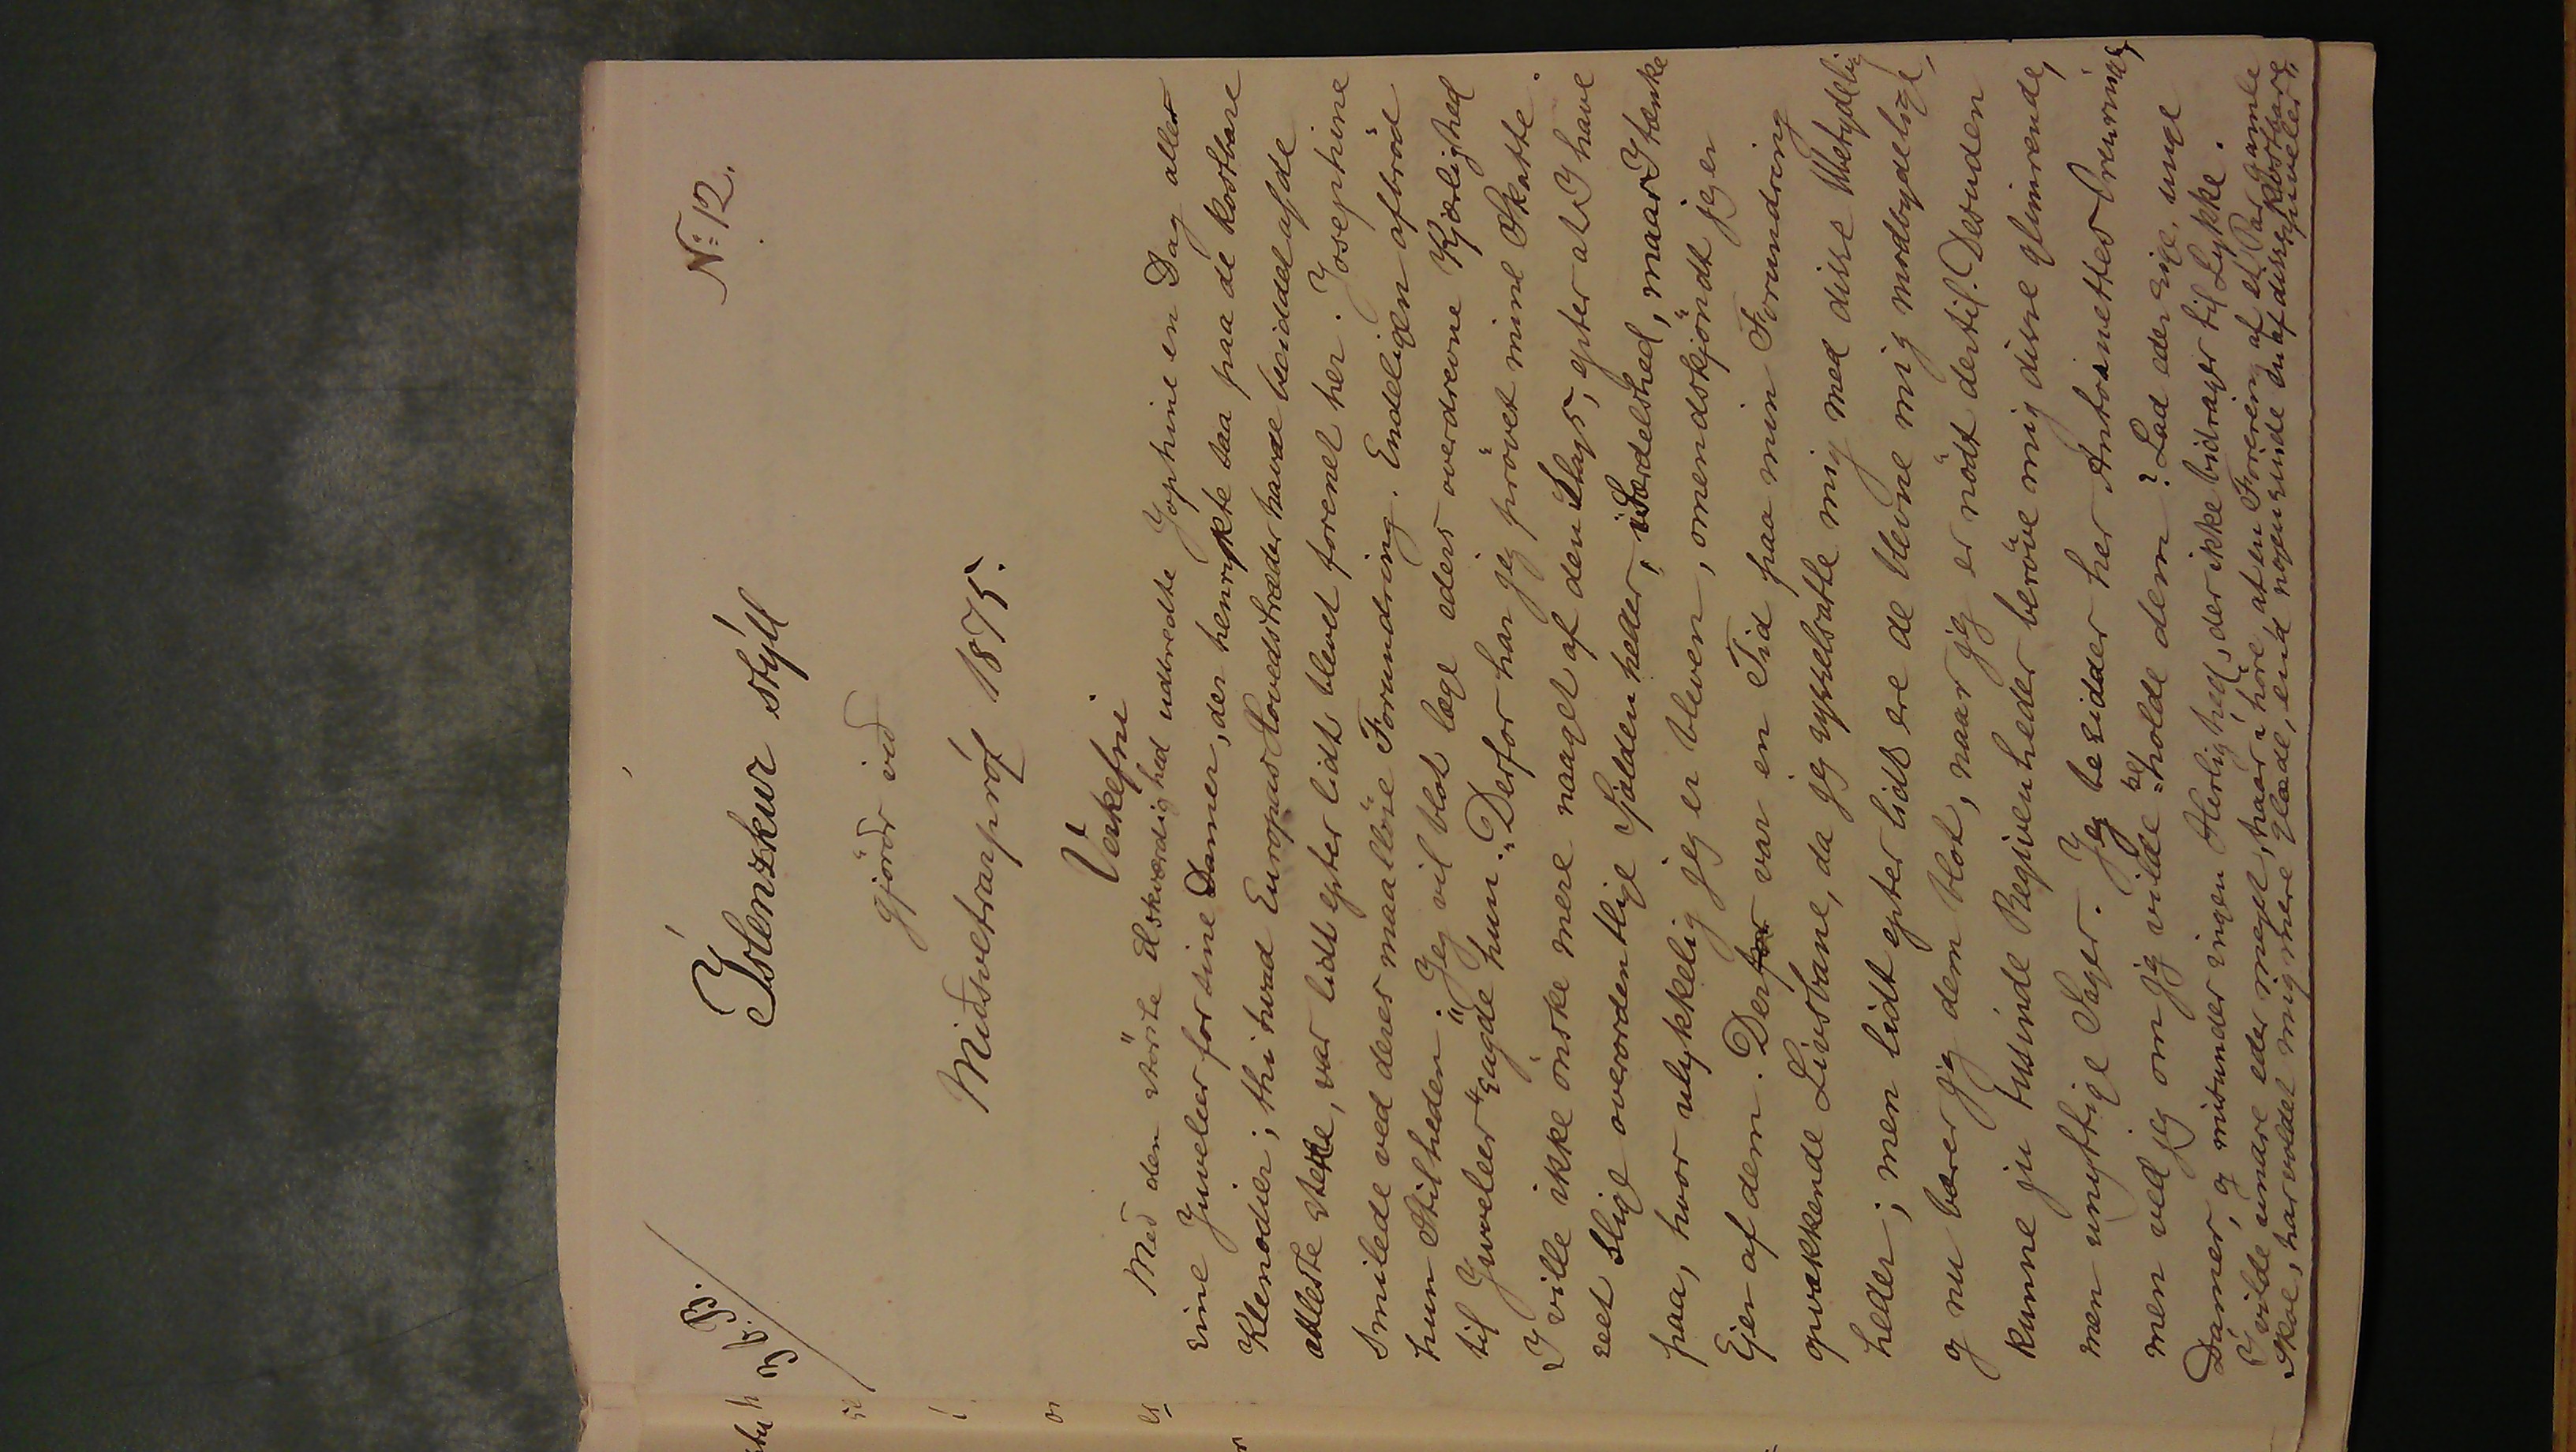 3ja B.
N: 12.
Íslenzkur stýll
gjörðr við
Miðsvetrarpróf 1875.
Verkefni
Med den störste Elskværdighed udbredte Josphine en Dag aller
sine Juveleer for sine Damer, der henrykte saa paa de kostbare
Klenodier; thi hvad Europas Hovedstræder havde besiddet af de
ædleste Stene, var lidt epter lidt blevet forenet her. Josephine
smilede ved deres maallöse Forundring. Endeligen afbröd
hun Stilheden: "Jeg vil blot læge eders overdrevne Kjærlighed
til Juveleer" sagde hun. "Derfor har jeg prövet mine Skatte.
I ville ikke önske mere noget af den Slags, epter at I have
seet slige overordentlige Sjældenheder, isærdelshed, naar I tænke
paa, hvor ulykkelig jeg er bleven, omendskjöndt jeg er
Ejer af dem. Der var en Tid paa min Forundring
opvækkende Livsbane, da jeg sysselsatte mig med disse Ubetydelig
heder; men lidt epter lidt ere de blevne mig modbydelige,
og nu bærer jeg dem blot, naar jeg er nödt dertil. Desuden
kunne ju tusinde Begivenheder beröve mig disse glimrende,
men unyttige Sager. Jeg besidder her Antoinettes Örenringe,
men ved jeg om jeg vilde beholde dem? Lad eder sige, unge
Damer, og misunder ingen Herlighed, der ikke bidrager til Lykke.
I vilde undre eder meget, naar I höre, at en Foræring af et Par gamle
Skoe, har voldet mig mere Glæde, end nogensinde en af disse kostbare
Juveler"